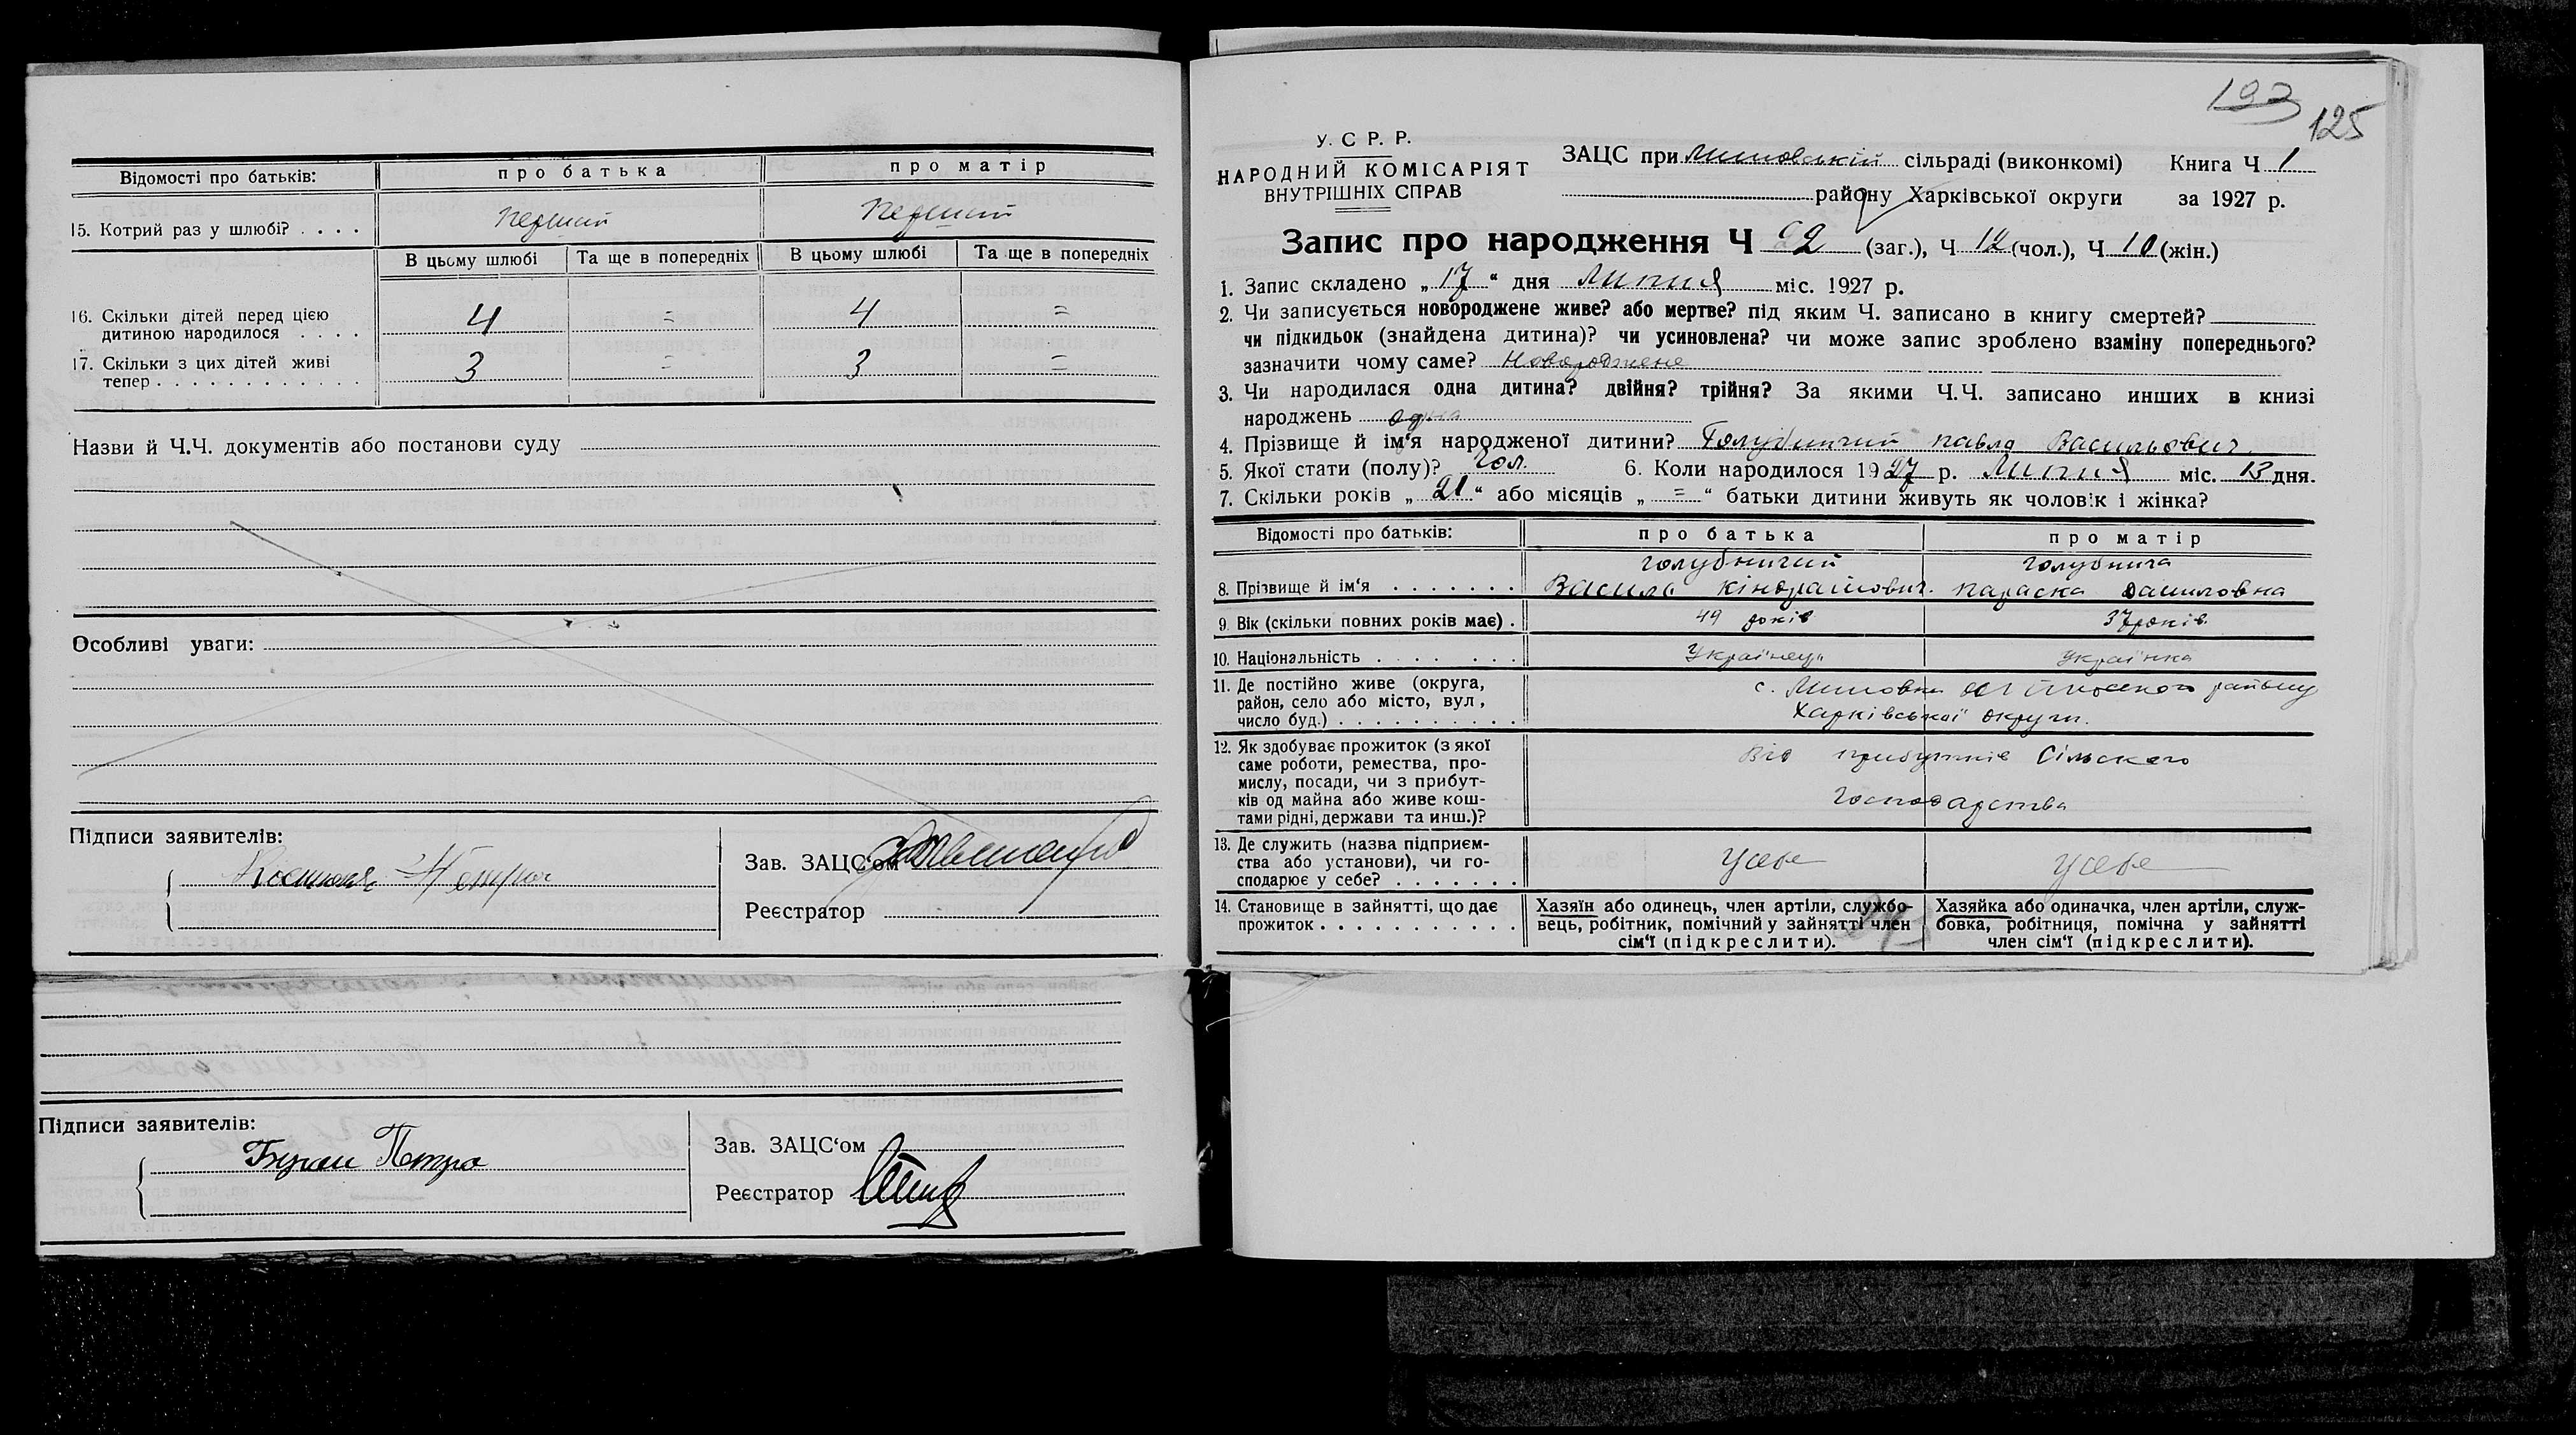 Відомості про батьків: про батька про матір
15. Котрий раз у шлюбі? . . . . Перший Перший
В цьому шлюбі Та ще в попередніх В цьому шлюбі Та ще в попередніх
16. Скільки дітей перед цією
дитиною народилося . . . . 4 = 4 =
17. Скільки з цих дітей живі
тепер . . . . . . . . . . . . . 3 = 3 =
Назви й Ч.Ч. документів або постанови суду
Особливі уваги:
Підписи заявителів:
Зав. ЗАЦС‘ом
Реєстратор
Підписи заявителів:
Петро
Зав. ЗАЦС‘ом
Реєстратор
193
125
У. С. Р. Р.
НАРОДНИЙ КОМІСАРІЯТ
ВНУТРІШНІХ СПРАВ
ЗАЦС при сільраді (виконкомі) Книга Ч 1
району Харківської округи за 1927 р.
Запис про народження Ч 22 (заг.), Ч 12 (чол.), Ч 10 (жін.)
1. Запис складено „ 17 “ дня Липня міс. 1927 р.
2. Чи записується новороджене живе? або мертве? під яким Ч. записано в книгу смертей?
чи підкидьок (знайдена дитина)? чи усиновлена? чи може запис зроблено взаміну попереднього?
зазначити чому саме? Новороджене
3. Чи народилася одна дитина? двійня? трійня? За якими Ч.Ч. записано инших в книзі
народжень одна
4. Прізвище й ім‘я народженої дитини? Голубничий Павло Васильович
5. Якої стати (полу)? Чол. 6. Коли народилося 1927 р. Липня міс. 13 дня.
7. Скільки років „ 21 “ або місяців „ = “ батьки дитини живуть як чоловік і жінка?
Відомості про батьків: про батька про матір
Голубничий Голубнича
8. Прізвище й ім‘я . . . . . . . Василь Кіндратович. Параска Даниловна
9. Вік (скільки повних років має) . 49 років 37 років
10. Національність . . . . . . . Українець Українка
11. Де постійно живе (округа,
район, село або місто, вул.,
число буд.) . . . . . . . . . . . с. району
Харківської округи.
12. Як здобуває прожиток (з якої
саме роботи, ремества, про-
мислу, посади, чи з прибут-
ків од майна або живе кош-
тами рідні, держави та инш.)?
Від прибутків Сільского
Господарства
13. Де служить (назва підприєм-
ства або установи), чи го-
сподарює у себе? . . . . . . . у себе у себе
14. Становище в зайнятті, що дає
прожиток . . . . . . . . . . . .
Хазяїн або одинець, член артілі, службо-
вець, робітник, помічний у зайнятті член
сім‘ї (підкреслити).
Хазяйка або одиначка, член артілі, служ-
бовка, робітниця, помічна у зайнятті
член сім‘ї (підкреслити).